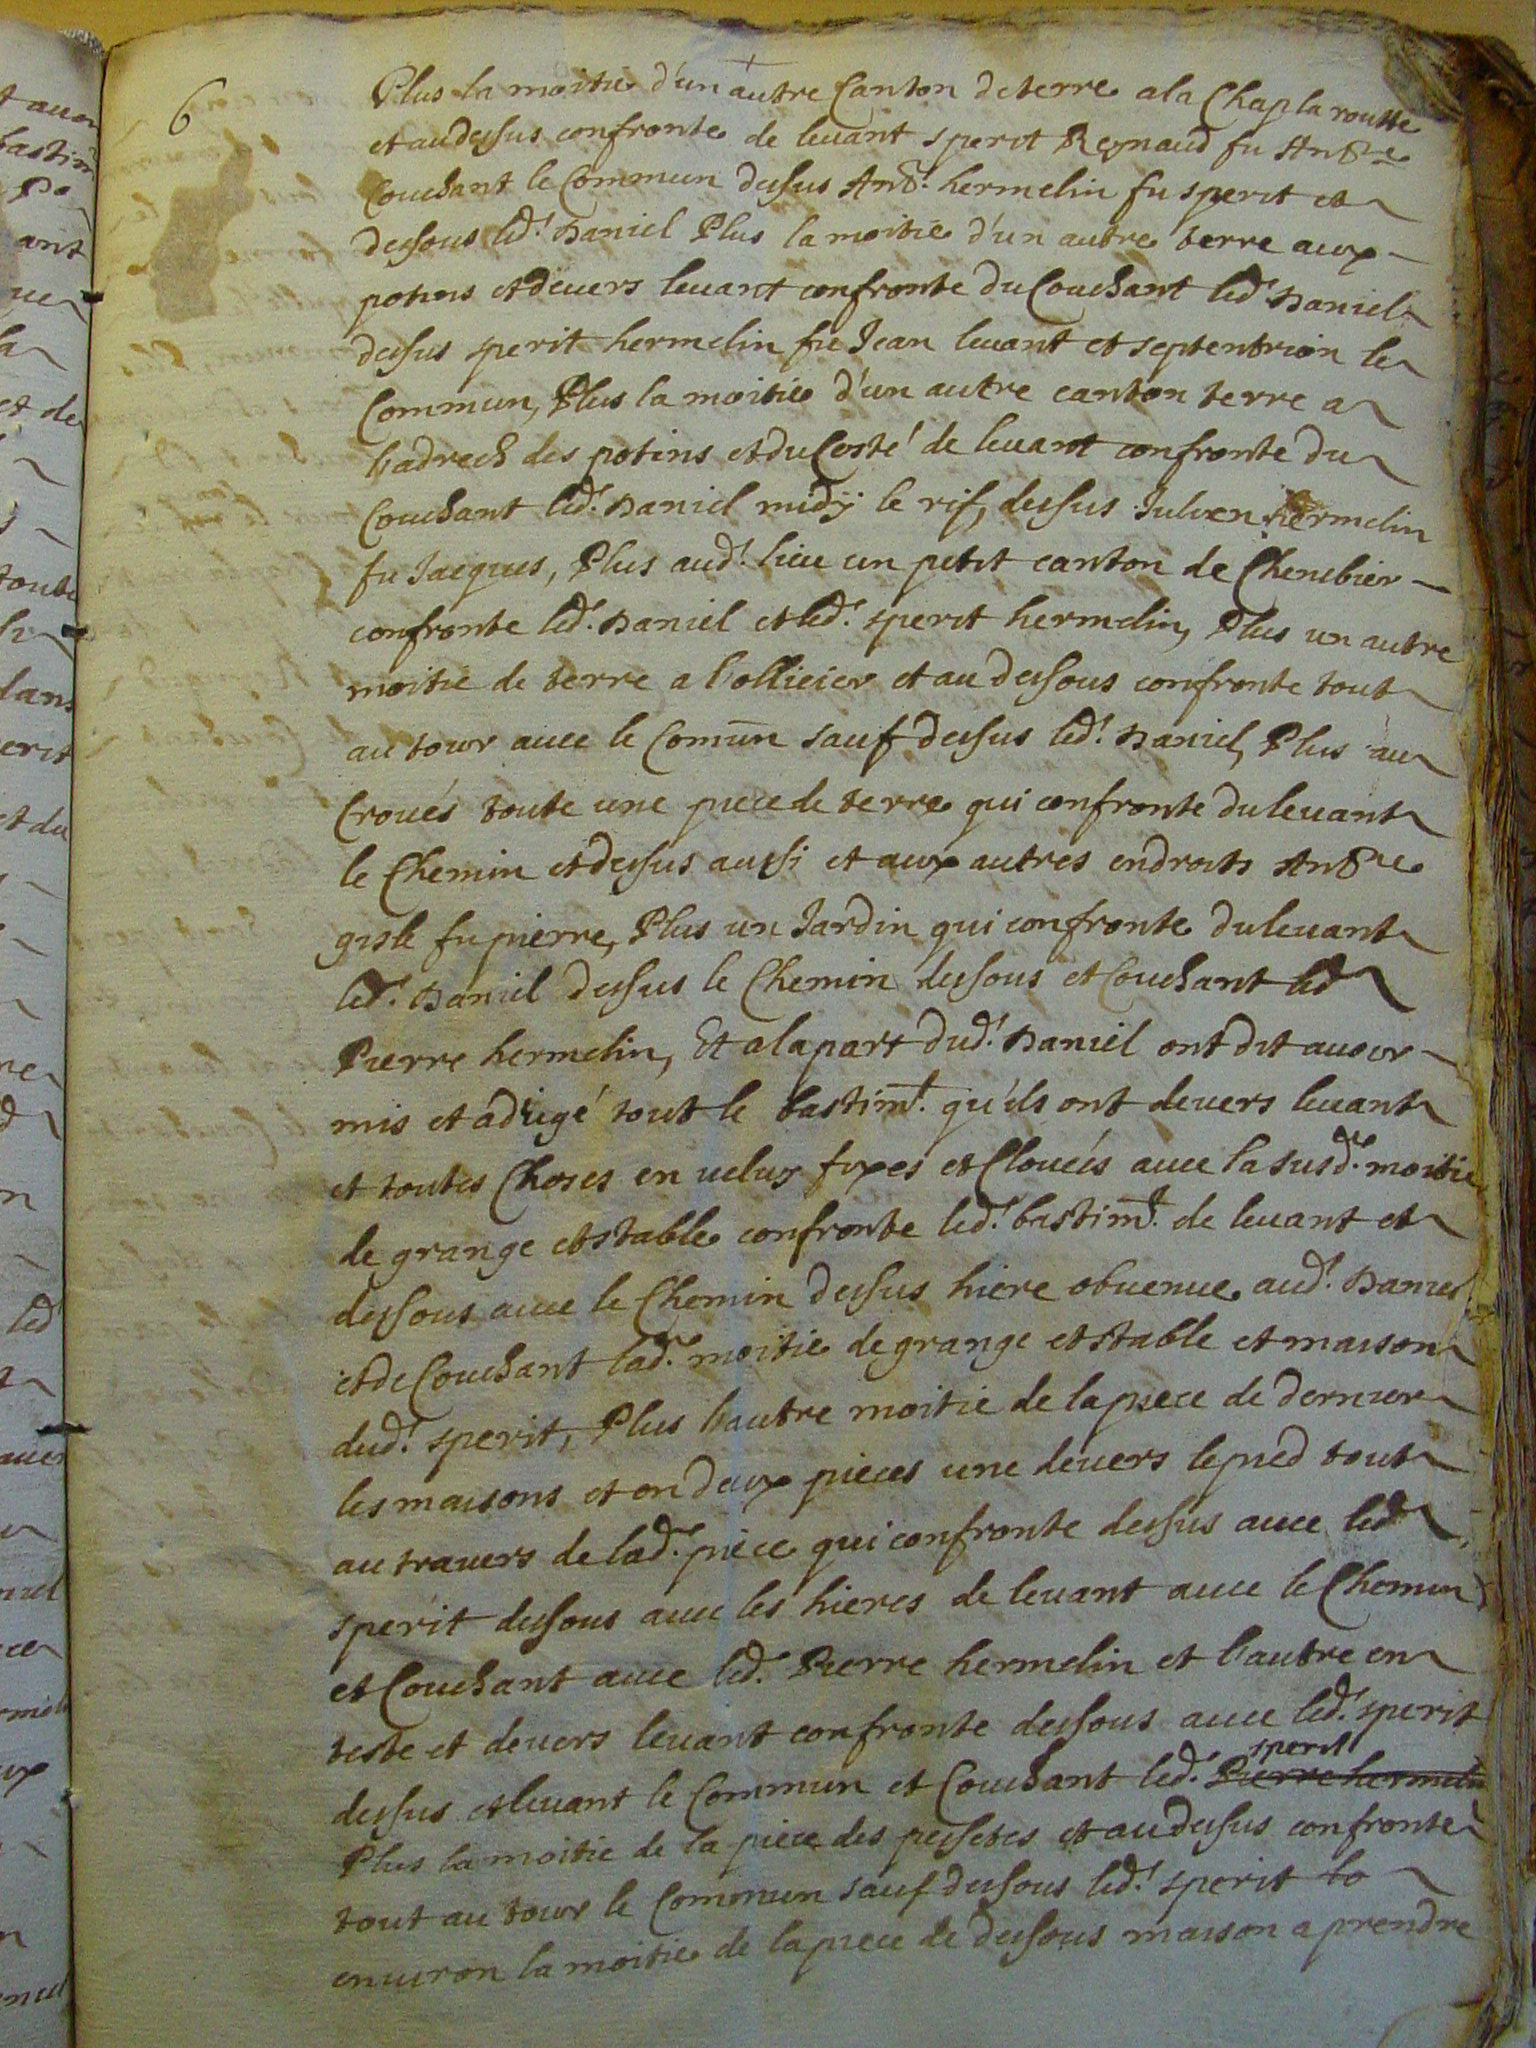 6
Plus la moitie d'un autre Canton de terre a la Chaplaroutte
et au dessus confronte de leuant sperit Reynaud fu Anthe
Couchant le Commun dessus Anth. hermelin fu sperit et
dessous led.t Daniel Plus la moitie d'un autre terre aux
potins et deuers leuant confronte du Couchant led.t Daniel
dessus sperit hermelin fu Jean leuant et septentrion le
Commun, Plus la moitie d'un autre canton terre a
ladrech des potins et du Costé de leuant confronte du
Couchant led.t Daniel midy le rif, dessus Julien hermelin
fu Jacques, Plus aud.t lieu un petit canton de Chenebier
confronte led.t Daniel et led.t sperit hermelin, Plus un autre
moitie de terre a lollieier et au dessous confronte tout
au tour auec le Comun sauf dessus led.t Daniel, Plus au
Croués toute une piece de terre qui confronte du leuant
le Chemin et dessus aussi et aux autres endroits Anthe
gisle fu pierre, Plus un Jardin qui confronte du leuant
led.t Daniel dessus le Chemin dessous et Couchant led
Pierre hermelin, Et a la part dud.t Daniel ont dit auoir
mis et adiugé tout le bastim.t qu'ils ont deuers leuant
et toutes Choses en uelux fixes et Clouées auec la susd.e moitie
de grange et stable confronte led.t bastim.t de leuant et
dessous auec le Chemin dessus hiere obuenue aud.t Daniel
et de Couchant lad.e moitie de grange et stable et maison
dud.t sperit, Plus lautre moitie de la piece de dernier
les maisons et en deux pieces une deuers le pied tout
au trauers de lad.e piece qui confronte dessus auec led
sperit dessous auec les hieres de leuant auec le Chemin
et Couchant auec led.t Pierre hermelin et lautre en
teste et deuers leuant confronte dessous auec led.t sperit
dessus et leuant le Commun et Couchant led.t sperit Pierre hermelin
Plus la moitie de la piece des pessetes et au dessus confronte
tout au tour le Commun sauf dessous led.t sperit to
enuiron la moitie de la piece de dessous maison a prendre